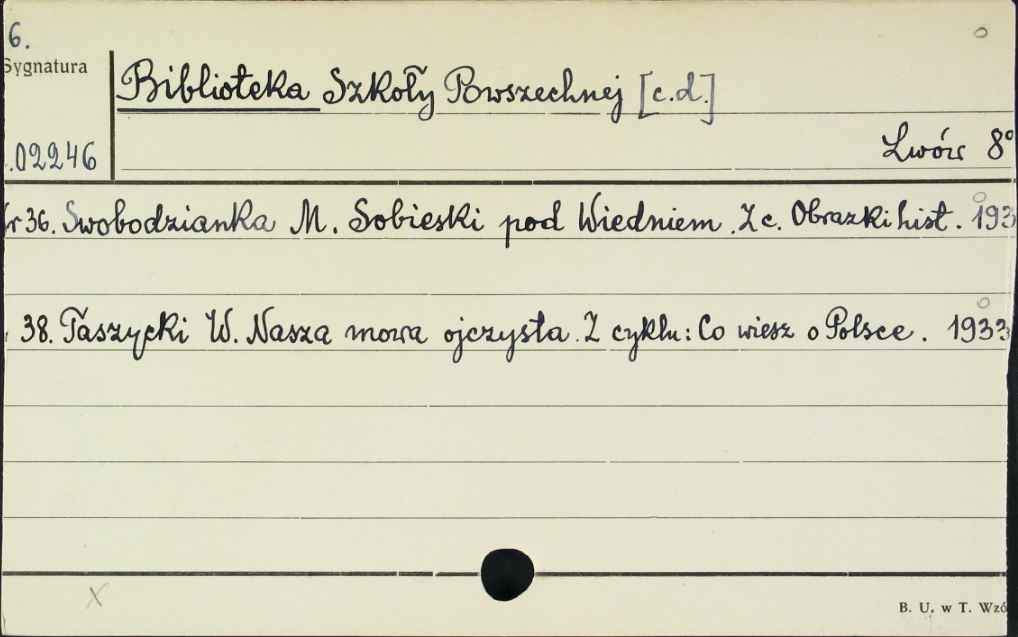 6.
Sygnatura
Biblioteka Szkoły Powszechnej [c.d.]
.02246
Lwów 8°
36. Swobodzianka M. Sobieski pod Wiedniem. Z c. Obrazki hist. 193
38. Taszycki W. Nasza mowa ojczysta. Z cyklu: Co wiesz o Polsce. 1933
x
B. U. w T. Wzó